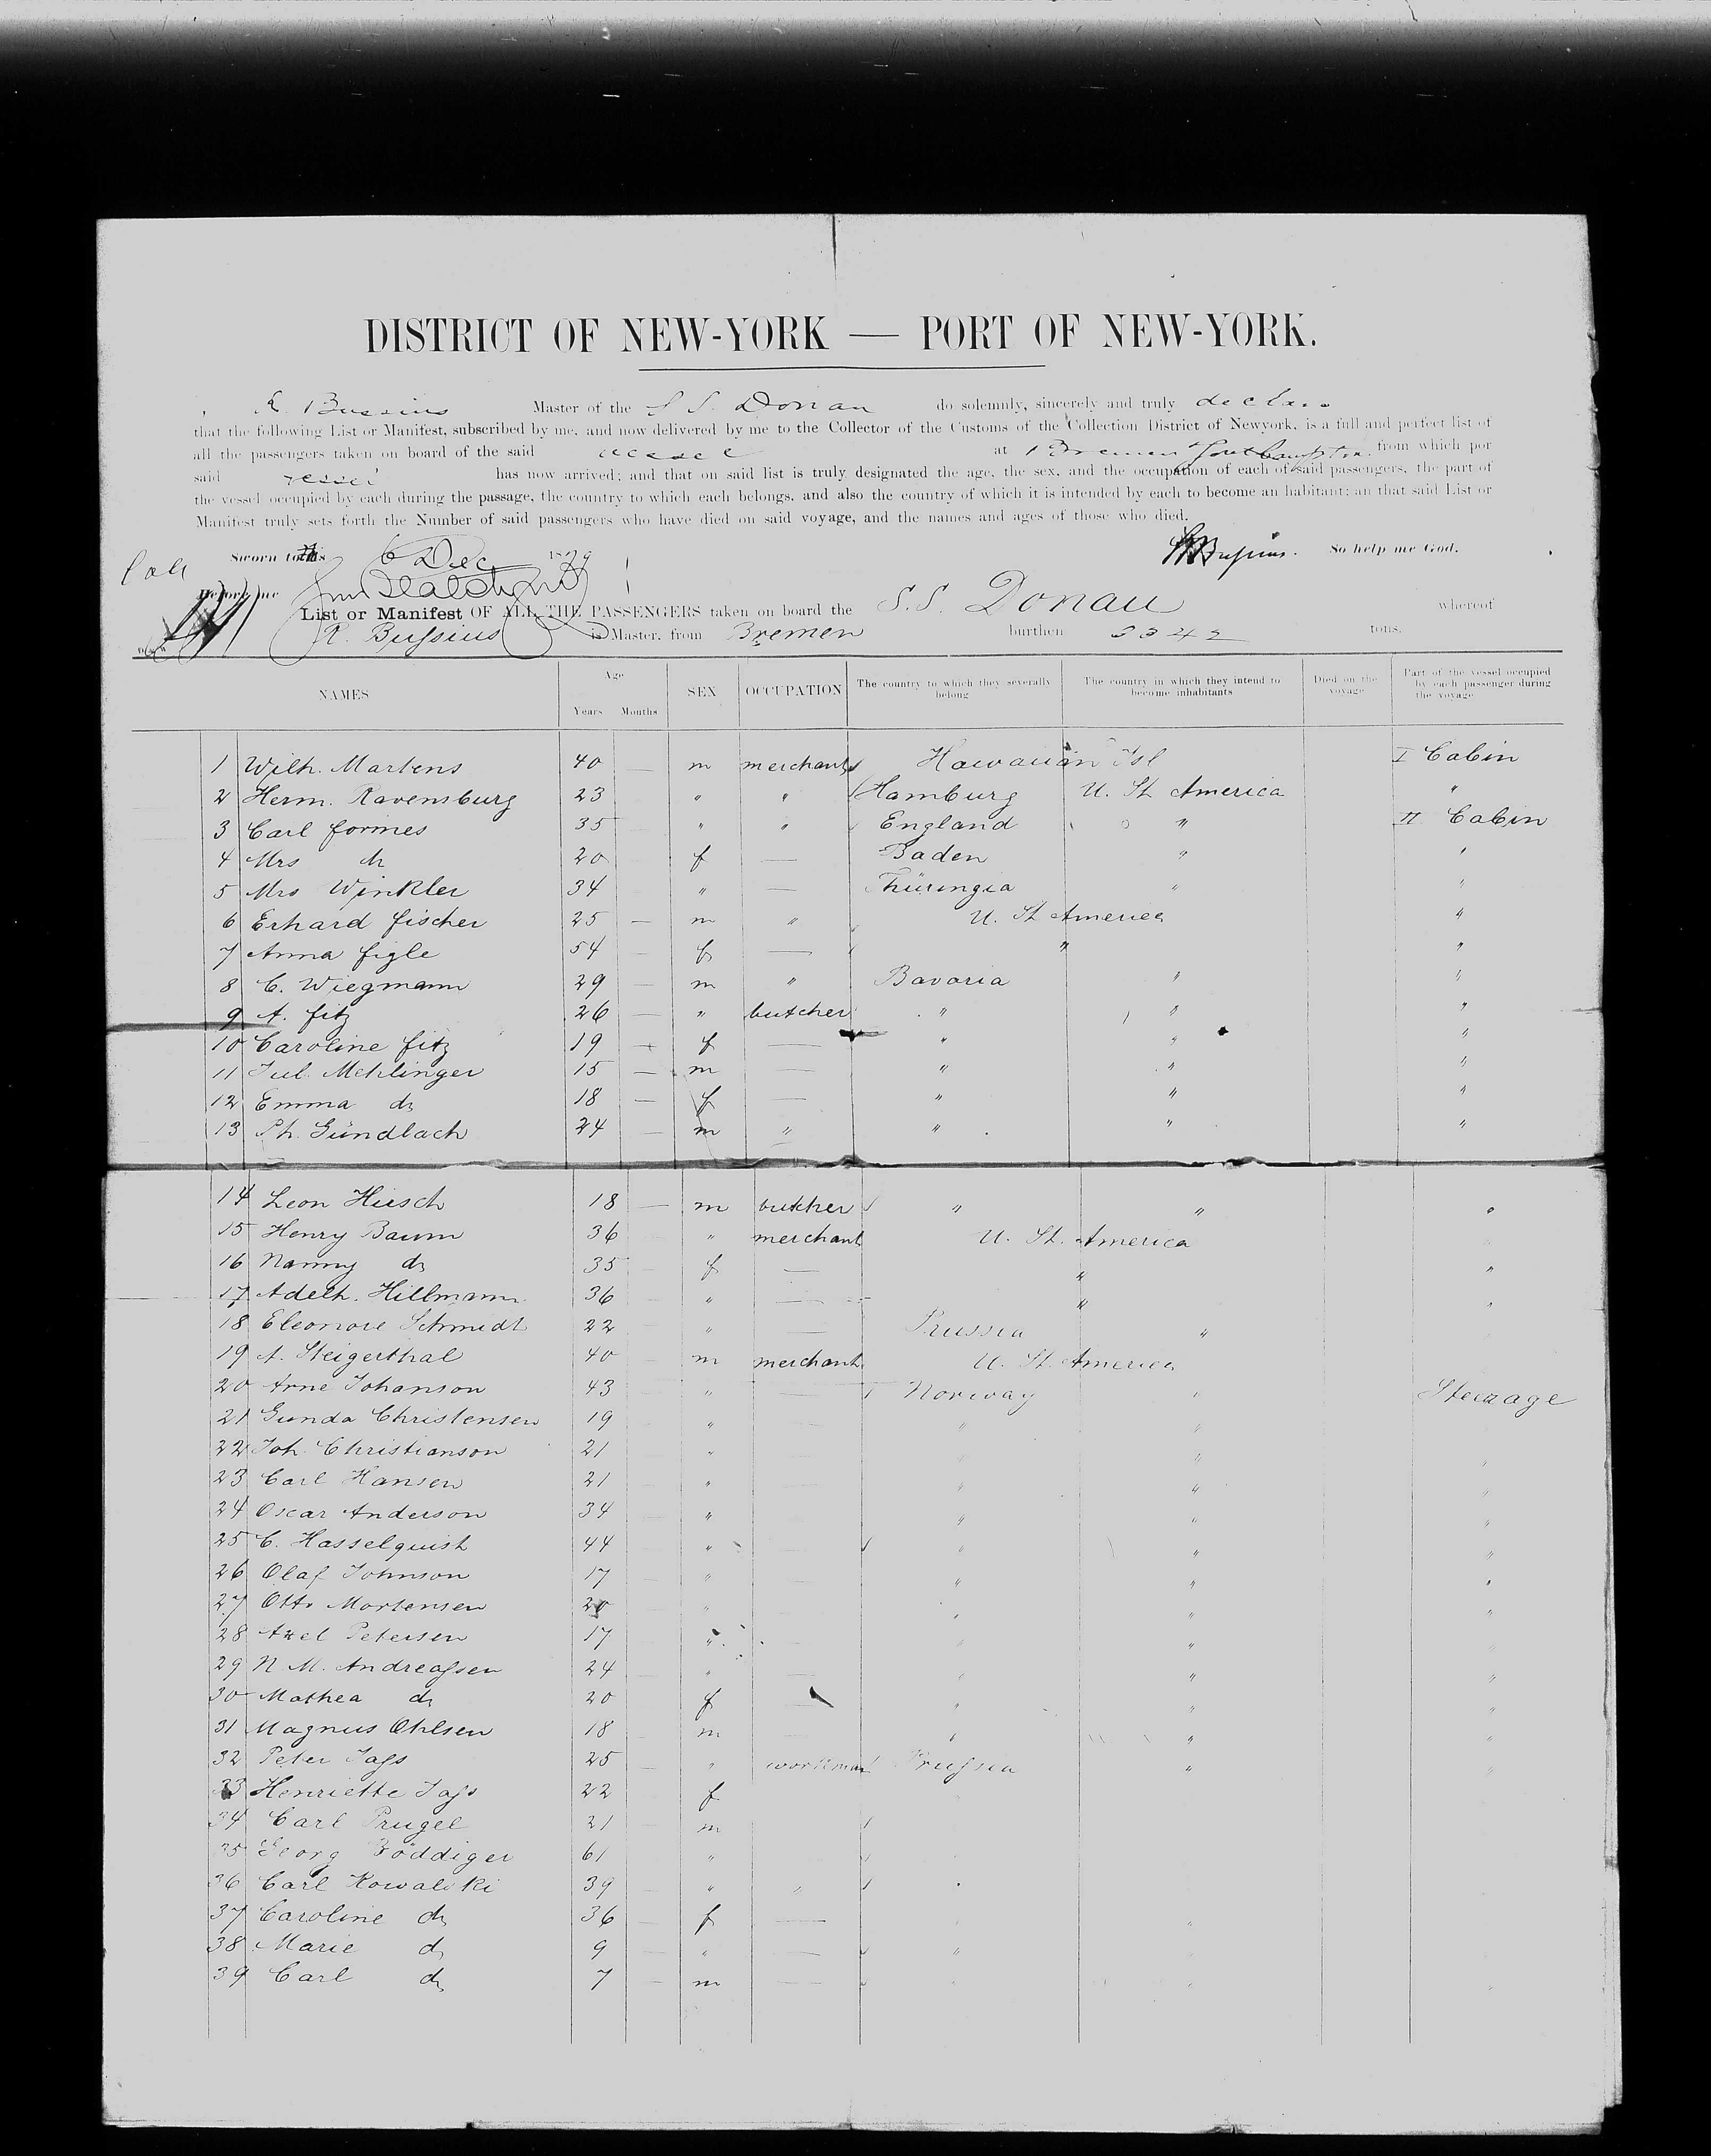 DISTRICT OF NEW-YORK — PORT OF NEW-YORK.
R. Bussius Master of the S S. Donau do solemnly, sincerely and truly declare
that the following List or Manifest, subscribed by me, and now delivered by me to the Collector of the Customs of the Collection District of Newyork, is a full and perfect list of
all the passengers taken on board of the said vessel at Bremen Southampton from which por
said vessel has now arrived; and that on said list is truly designated the age, the sex, and the occupation of each of said passengers, the part of
the vessel occupied by each during the passage, the country to which each belongs, and also the country of which it is intended by each to become an habitant; an that said List or
Manifest truly sets forth the Number of said passengers who have died on said voyage, and the names and ages of those who died.
Sworn to this 6 Dec 1879 R Bussius. So help me God.
Before me
List or Manifest OF ALL THE PASSENGERS taken on board the S.S. Donau whereof
R. Bussius is Master, from Bremen burthen tons.
NAMES Age Years Months SEX OCCUPATION The country to which they severally belong The country in which they intend to become inhabitants Died on the voyage Part of the vessel occupied by each passenger during the voyage
1 Wilh. Martens 40 — m merchant Hawaiian Isl I Cabin
2 Herm. Ravensburg 23 " " Hamburg U. St America "
3 Carl Formes 35 " " England " II Cabin
4 Mrs do 20 f — Baden " "
5 Mrs Winkler 34 " — Thüringia " "
6 Erhard Fischer 25 — m " U. St America "
7 Anna Figle 54 — f — " "
8 C. Wiegmann 29 — m " Bavaria " "
9 A. Fitz 26 — " butcher " " "
10 Caroline Fitz 19 — f — " " "
11 Jul. Mehlinger 15 — m — " " "
12 Emma do 18 — f — " " "
13 Ph. Gündlach 24 — m " " " "
14 Leon Hirsch 18 — m butcher " " "
15 Henry Baum 36 " merchant U. St. America
16 Nanny do 35 f — " "
17 Adelh. Hillmann 36 " — " "
18 Eleonore Schmidt 22 " — Prussia "
19 A. Steigerthal 40 m merchant U. St. America
20 Arne Johanson 43 " — Norway " Steerage
21 Gunda Christensen 19 " " "
22 Joh. Christianson 21 " " " "
23 Carl Hansen 21 " " " "
24 Oscar Anderson 34 " " " "
25 C. Hasselquist 44 " " " "
26 Olaf Johnson 17 " " " "
27 Otto Mortensen 20 " " " "
28 Axel Petersen 17 " " " "
29 N. M. Andreassen 24 " — " " "
30 Mathea do 20 f — " " "
31 Magnus Ohlsen 18 m " " "
32 Peter Jass 25 " workman Prussia " "
33 Henriette Jass 22 f
34 Carl Prugel 21 m
35 Georg Böddiger 61 "
36 Carl Kowalski 39 " " "
37 Caroline do 36 f — " "
38 Marie do 9 " — "
39 Carl do 7 m — " " "